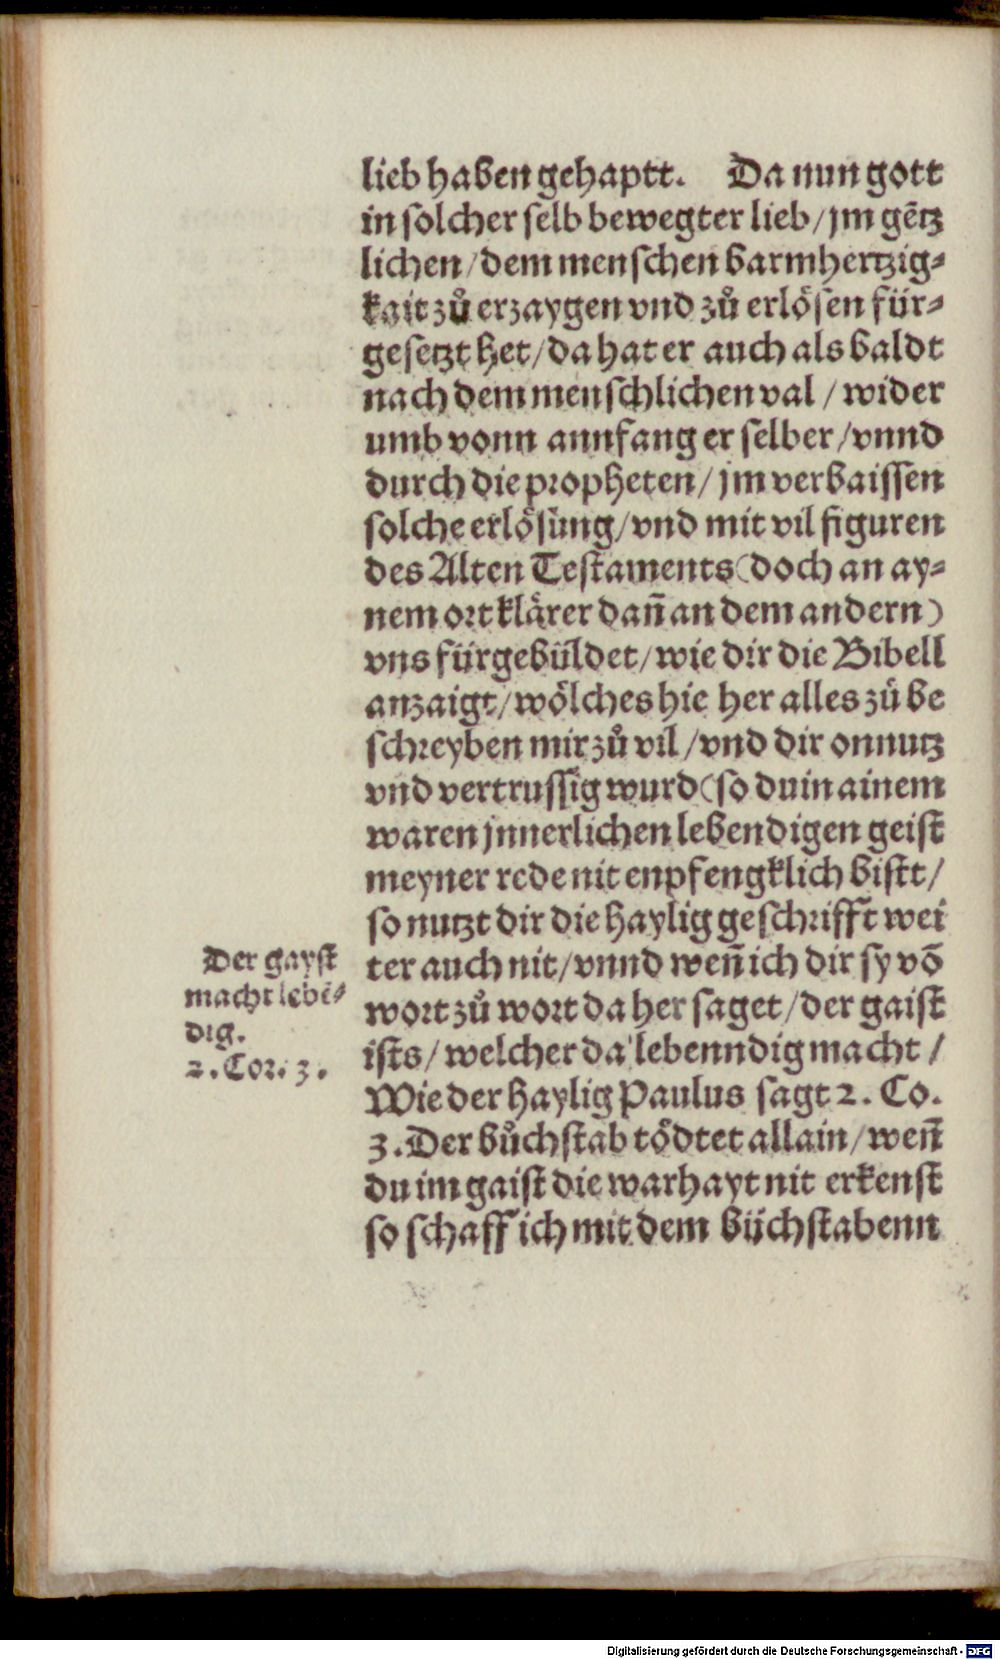 lieb haben gehaptt. Da nun gott
in solcher selb bewegter lieb/jm gētz
lichen/dem menschen barmhertzig⸗
kait zů erzaygen vnd zů erlösen für⸗
gesetzt het/da hat er auch als baldt
nach dem menschlichen val/wider
umb vonn annfang er selber/vnnd
durch die propheten/jm verbaissen
solche erlösung/vnd mit vil figuren
des Alten Testaments(doch an ay⸗
nem ort klärer dañ an dem andern)
vns fürgebüldet/wie dir die Bibell
anzaigt/wölches hie her alles zů be
schreyben mir zů vil/vnd dir onnutz
vnd vertrussig wurd(so du in ainem
waren jnnerlichen lebendigen geist
meyner rede nit enpfengklich bistt/
so nutzt dir die haylig geschrifft wei
ter auch nit/vnnd weñ ich dir sy vō
wort zů wort da her saget/der gaist
ists/welcher da lebenndig macht/
Wie der haylig Paulus sagt 2. Co.
3. Der bůchstab tödtet allain/weñ
du im gaist die warhayt nit erkenst
so schaff ich mit dem büchstabenn
Der gayst
macht lebē⸗
dig.
2. Cor. 3.
Digitalisierung gefördert durch die Deutsche Forschungsgemeinschaft - DFG